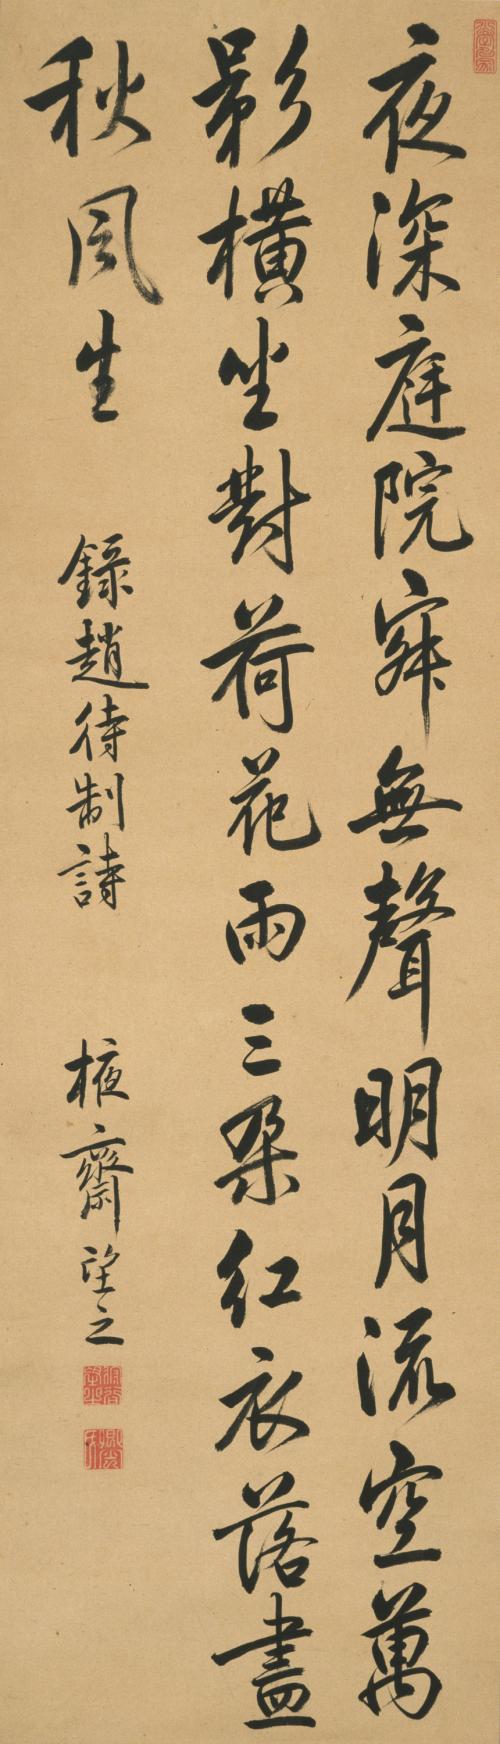 夜深庭院寂無聲明月流空萬
影橫坐對荷花雨三朶紅衣落盡
秋風生
錄趙待制詩
棭齋望之